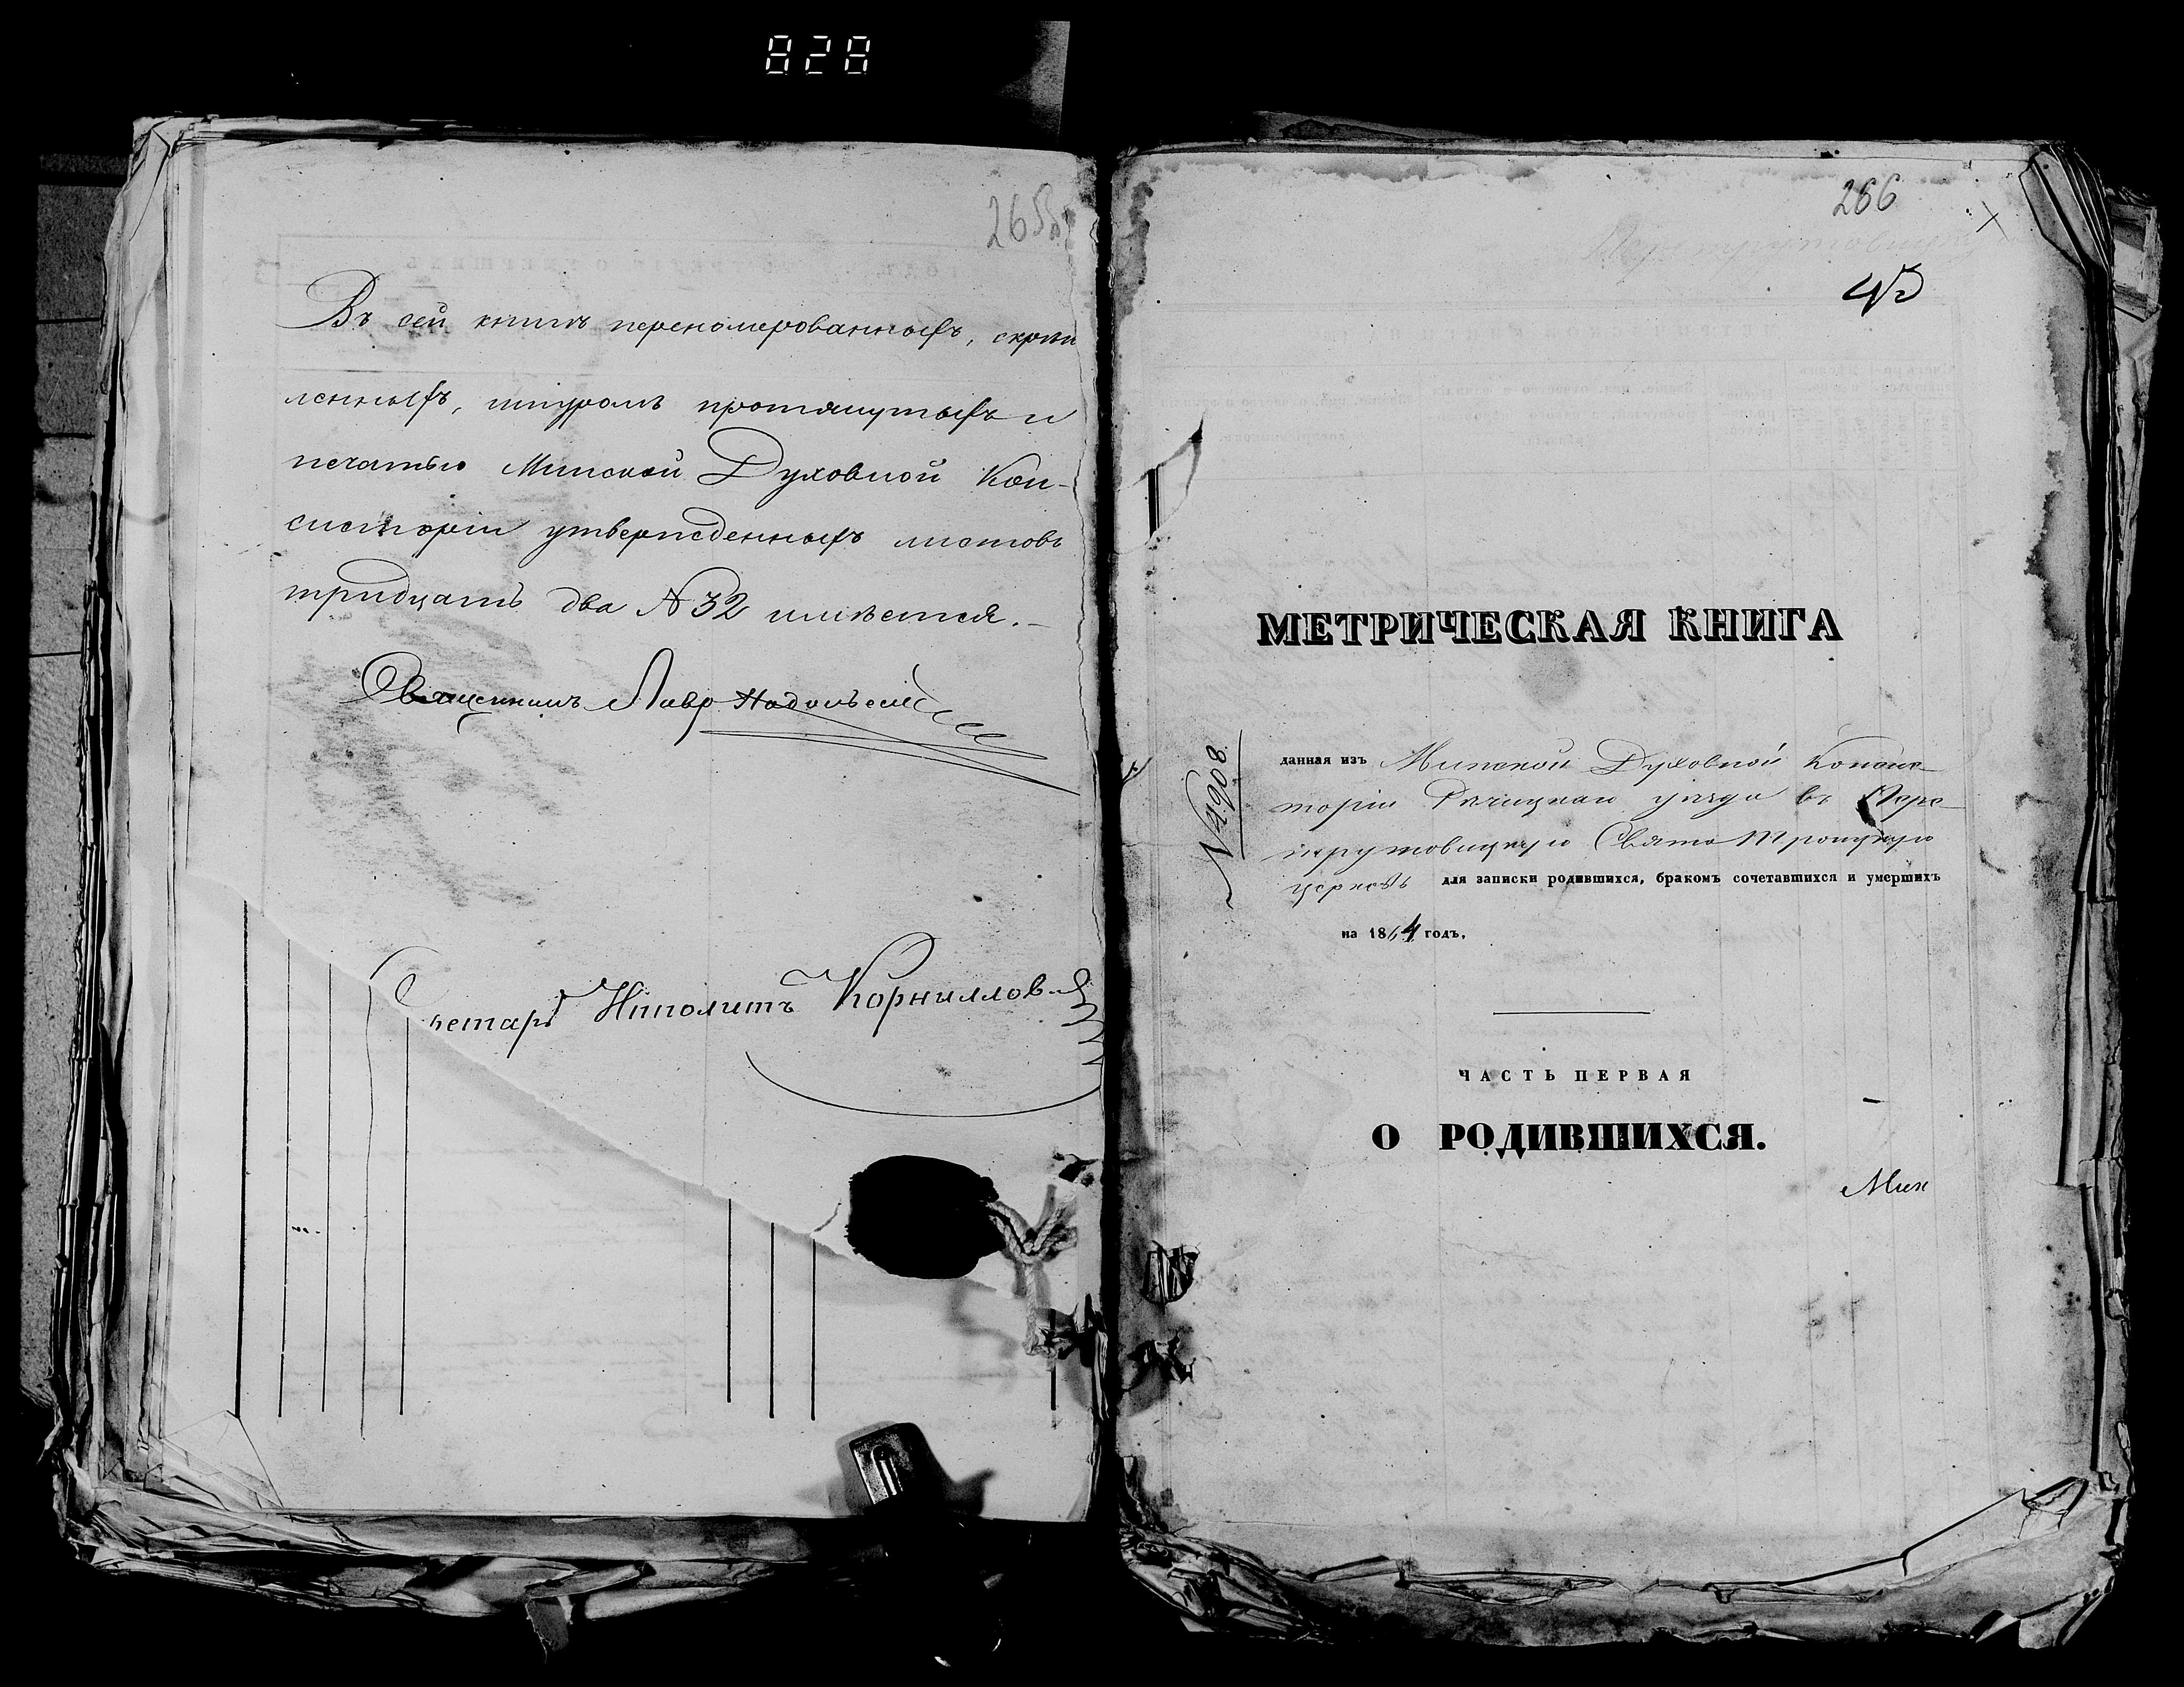 828
265об
Въ сей книгѣ перенумерованныхъ, скрѣп
ленныхъ, шнуромъ протянутыхъ и
печатью Минской Духовной Кон-
систоріи утвержденныхъ листовъ
тридцать два № 32 имѣется.-
Священникъ Лавр
кретарь Ипполитъ Корниллов
266
Перекрутовицкую
42
МЕТРИЧЕСКАЯ КНИГА
№ 4908
данная изъ Минской Духовной Консис-
торіи Рѣчицкаго уѣзда въ Пере-
крутовицкую Свято Троицкую
церковь для записки родившихся, бракомъ сочетавшихся и умершихъ
на 1864 годъ.
ЧАСТЬ ПЕРВАЯ
О РОДИВШИХСЯ.
Мин